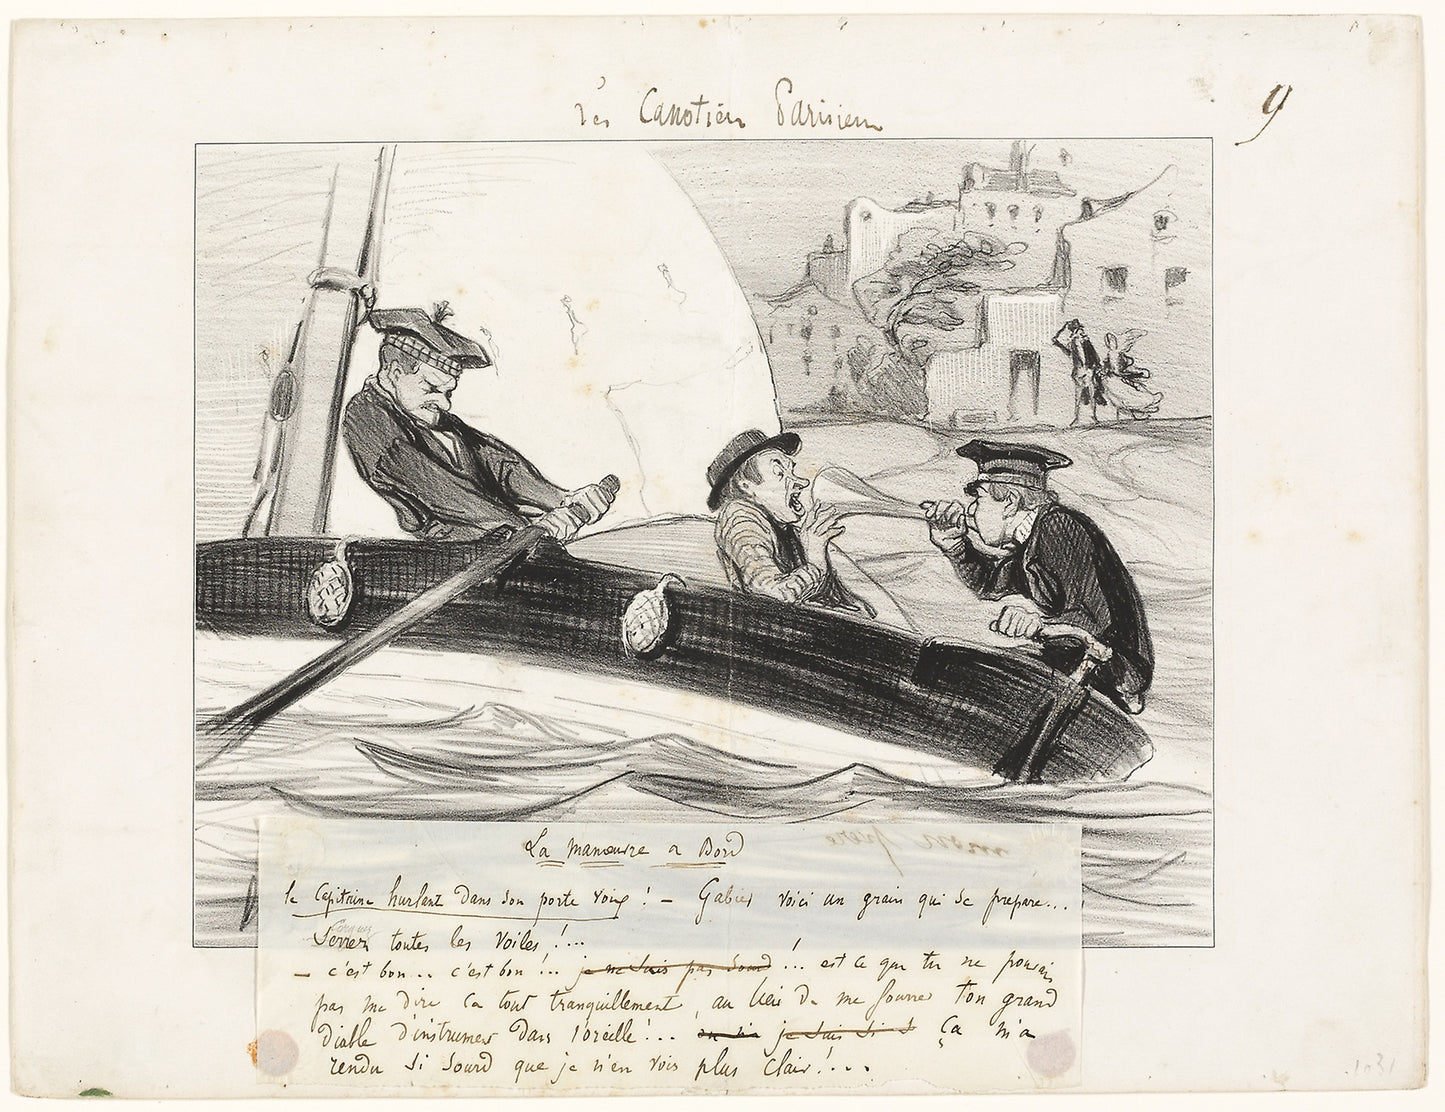 Les Canotiers Parisiens
9
La manœuvre a Bord
le Capitaine hurlant dans son porte voix ! — Gabier voici un grain qui se prepare....
Serrez toutes les voiles !...
— c'est bon... c'est bon !... je ne suis pas sourd !... est ce que tu ne pouvais
pas me dire ca tout tranquillement, au lieu de me fourrer ton grand
diable d'instrument dans l'oreille !... je suis si s Ça m'a
rendu si sourd que je n'en vois plus clair !....
1031